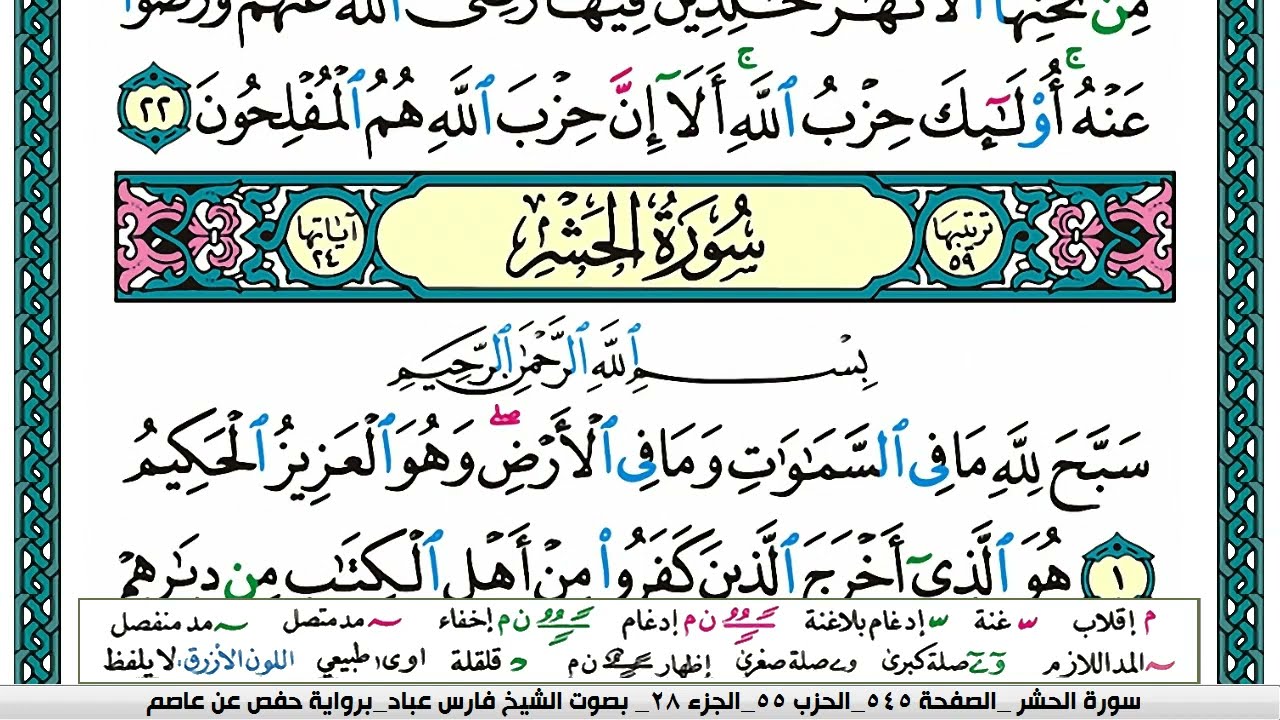 مِن تَحْتِهَا ٱلْأَنْهَـٰرُ خَـٰلِدِينَ فِيهَا رَضِىَ ٱللَّهُ عَنْهُمْ وَرَضُوا۟
عَنْهُ ۚ أُو۟لَـٰٓئِكَ حِزْبُ ٱللَّهِ ۚ أَلَآ إِنَّ حِزْبَ ٱللَّهِ هُمُ ٱلْمُفْلِحُونَ ٢٢
ترتيبها ٥٩ سُورَةُ الحَشْرِ آياتها ٢٤
بِسْمِ ٱللَّهِ ٱلرَّحْمَـٰنِ ٱلرَّحِيمِ
سَبَّحَ لِلَّهِ مَا فِى ٱلسَّمَـٰوَٰتِ وَمَا فِى ٱلْأَرْضِ ۖ وَهُوَ ٱلْعَزِيزُ ٱلْحَكِيمُ
١ هُوَ ٱلَّذِىٓ أَخْرَجَ ٱلَّذِينَ كَفَرُوا۟ مِنْ أَهْلِ ٱلْكِتَـٰبِ مِن دِيَـٰرِهِمْ
م إقلاب س غنة س إدغام بلاغنة ن م إدغام ن م إخفاء مد متصل مد منفصل
المد اللازم صلة كبرى و ے صلة صغرى إظهار ن م د قلقلة اوى طبيعي اللون الأزرق: لا يلفظ
سورة الحشر _الصفحة ٥٤٥_الحزب ٥٥_الجزء ٢٨_ بصوت الشيخ فارس عباد_برواية حفص عن عاصم